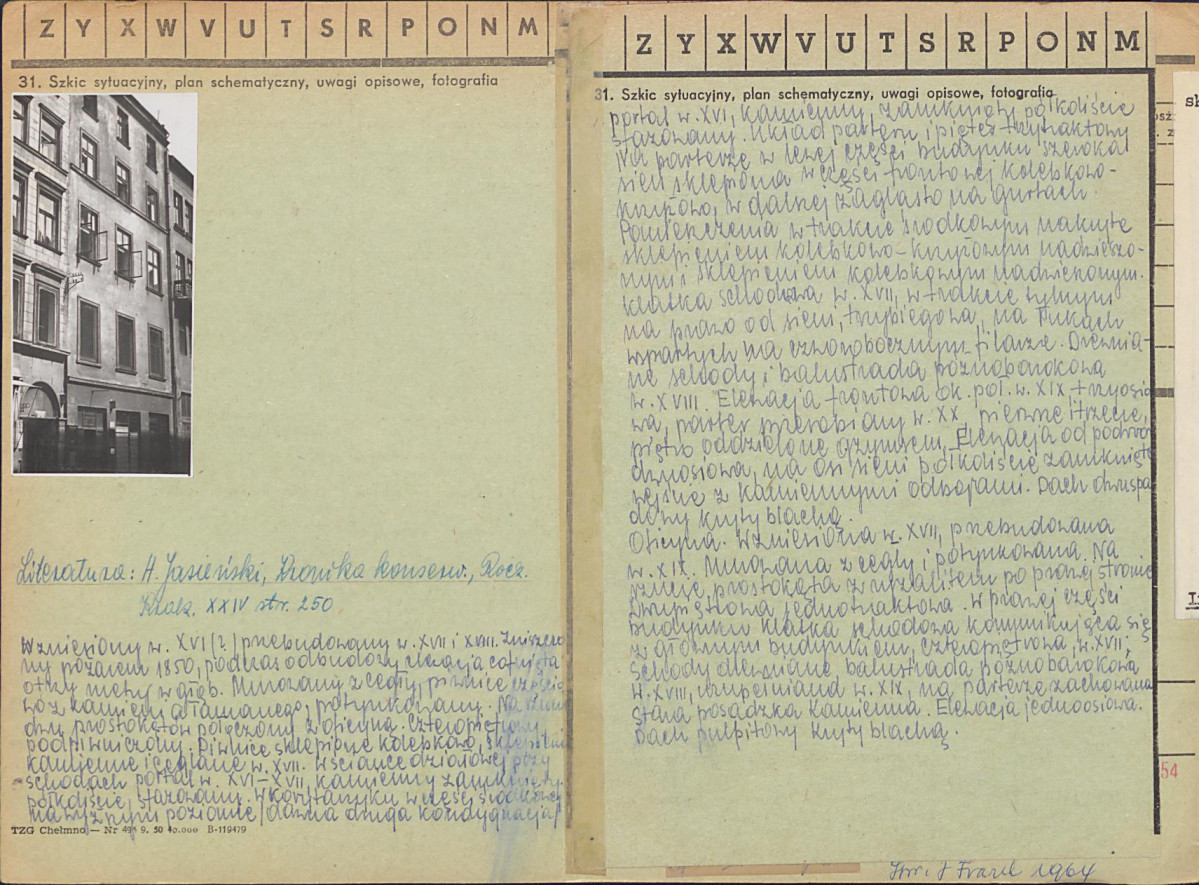 Z Y X W V U T S R P O N M
31. Szkic sytuacyjny, plan schematyczny, uwagi opisowe, fotografia
Literatura: A. Jasieński, Kronika konserw., Rocz.
Krak. XXIV str. 250
Wzniesiony w. XVI/?/ przebudowany w. XVII i XVIII. Zniszczo
ny pożarem 1850, podczas odbudowy elewacja cofnięta
otrzy metry w głąb. Murowany z cegły, piwnice częścio
wo z kamienia łamanego, potynkowany. Na rzucie
dwu prostokątów połączony z oficyną. Czteropiętrowy,
podpiwniczony. Piwnice sklepione kolebkowo, sklepienia
kamienne i ceglane w. XVIII. W ściance działowej przy
schodach portal w. XVI–XVII, kamienny zamknięty
półkoliście, fazowany. W korytarzyku w części środkowej
na wyższym poziomie /dawna druga kondygnacja/
TZG Chełmno — Nr 49 9. 50 40.000 B-119479
Z Y X W V U T S R P O N M
31. Szkic sytuacyjny, plan schematyczny, uwagi opisowe, fotografia
portal w. XVI, kamienny, zamknięty półkoliście
fazowany. Układ parteru i pięter trzytraktowy
Na parterze w lewej części budynku szeroka
sień sklepiona w części frontowej kolebkowo-
krzyżowo, w dalszej żaglasto na gurtach.
Pomieszczenia w trakcie środkowym nakryte
sklepieniem kolebkowo-krzyżowym nadwieszo-
nym i sklepieniem kolebkowym
Klatka schodowa w. XVII, w trakcie tylnym
na prawo od sieni, trzybiegowa, na łukach
wspartych na czworobocznym filarze. Drewnia-
ne schody i balustrada późnobarokowa
w. XVIII. Elewacja frontowa ok. poł. w. XIX trzyosio
wa, parter przerobiony w. XX, pierwsze i trzecie
piętro oddzielone gzymsem. Elewacja od podwor
dwuosiowa, na osi sieni półkoliście zamknięte
wejście z kamiennymi odbojami. Dach dwuspa
dowy kryty blachą.
Oficyna. Wzniesiona w. XVII, przebudowana
w. XIX. Murowana z cegły i potynkowana. Na
rzucie prostokąta z ryzalitem po prawej stronie
Dwupiętrowa jednotraktowa. W prawej części
budynku klatka schodowa komunikująca się
z głównym budynkiem, czteropiętrowa, w. XVII,
schody drewniane, balustrada późnobarokowa
w. XVIII, uzupełniana w. XIX, na parterze zachowana
stara posadzka kamienna. Elewacja jednoosiowa.
Dach pulpitowy kryty blachą.
54
1964